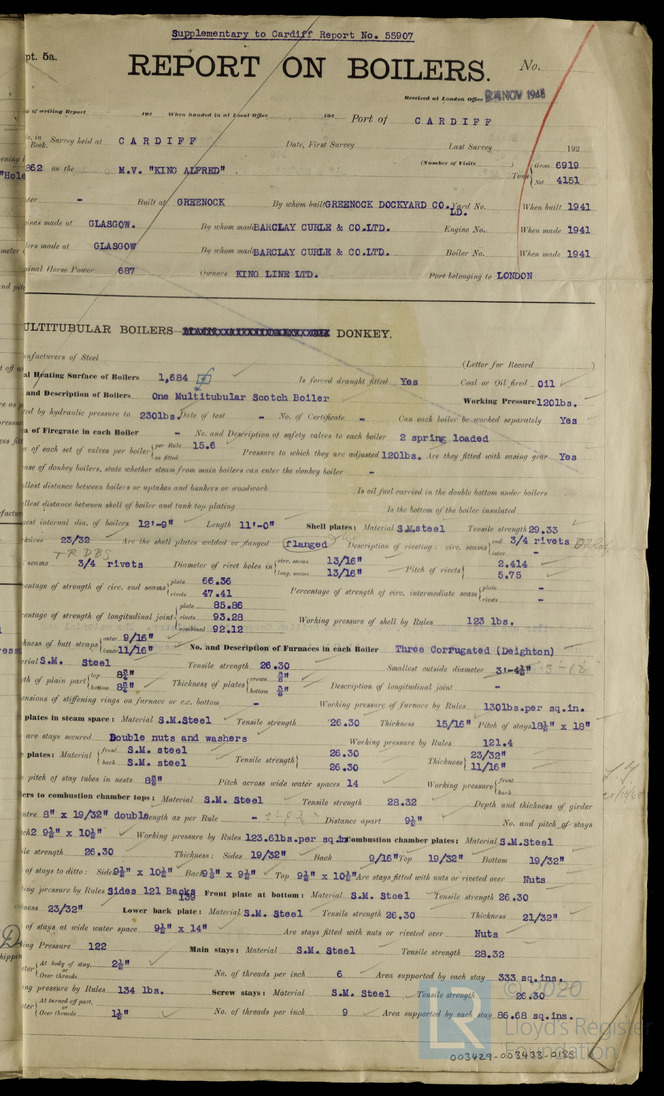 Supplementary to Cardiff Report No. 55907
pt. 5a.
REPORT ON BOILERS.
No.
Received at London Office 24 NOV 1948
of writing Report 192 When handed in at Local Office 192 Port of CARDIFF
in Book. Survey held at CARDIFF Date, First Survey Last Survey 192
862 on the M.V. "KING ALFRED" (Number of Visits ) Tons { Gross 6919
Net 4151
- Built at GREENOCK By whom built GREENOCK DOCKYARD CO. LD. Yard No. When built 1941
ines made at GLASGOW. By whom made BARCLAY CURLE & CO.LTD. Engine No. When made 1941
ers made at GLASGOW By whom made BARCLAY CURLE & CO.LTD. Boiler No. When made 1941
inal Horse Power 687 Owners KING LINE LTD. Port belonging to LONDON
ULTITUBULAR BOILERS DONKEY.
nufacturers of Steel (Letter for Record )
al Heating Surface of Boilers 1,684 Is forced draught fitted Yes Coal or Oil fired Oil
and Description of Boilers One Multitubular Scotch Boiler Working Pressure 120lbs.
ed by hydraulic pressure to 230lbs. Date of test - No. of Certificate - Can each boiler be worked separately Yes
a of Firegrate in each Boiler - No. and Description of safety valves to each boiler 2 spring loaded
a of each set of valves per boiler { per Rule 15.6 as fitted Pressure to which they are adjusted 120lbs. Are they fitted with easing gear Yes
ase of donkey boilers, state whether steam from main boilers can enter the donkey boiler -
allest distance between boilers or uptakes and bunkers or woodwork Is oil fuel carried in the double bottom under boilers
allest distance between shell of boiler and tank top plating Is the bottom of the boiler insulated
est internal dia. of boilers 12'-9" Length 11'-0" Shell plates: Material S.M.steel Tensile strength 29.33
kness 23/32 Are the shell plates welded or flanged flanged Description of riveting: circ. seams { end 3/4 rivets
inter. -
TRDBS
seams 3/4 rivets Diameter of rivet holes in { circ. seams 13/16" long. seams 13/16" Pitch of rivets { 2.414
5.75
entage of strength of circ. end seams { plate 66.36 rivets 47.41 Percentage of strength of circ. intermediate seam { plate - rivets -
entage of strength of longitudinal joint { plate 85.86 rivets 93.28 combined 92.12 Working pressure of shell by Rules 123 lbs.
kness of butt straps { outer 9/16" inner 11/16" No. and Description of Furnaces in each Boiler Three Corrugated (Deighton)
erial S.M. Steel Tensile strength 26.30 Smallest outside diameter
th of plain part { top bottom Thickness of plates { crown bottom Description of longitudinal joint -
ensions of stiffening rings on furnace or c.c. bottom - Working pressure of furnace by Rules 130lbs.per sq.in.
plates in steam space: Material S.M.Steel Tensile strength 26.30 Thickness 15/16" Pitch of stays 18½" x 18"
are stays secured Double nuts and washers Working pressure by Rules 121.4
plates: Material { front S.M. steel back S.M. steel Tensile strength { 26.30 26.30 Thickness { 23/32" 11/16"
pitch of stay tubes in nests Pitch across wide water spaces 14 Working pressure { front back
ers to combustion chamber tops: Material S.M. Steel Tensile strength 28.32 Depth and thickness of girder
entre 8" x 19/32" double Length as per Rule - Distance apart 9½" No. and pitch of stays
ach 2 9½" x 10½" Working pressure by Rules 123.6lbs.per sq.in Combustion chamber plates: Material S.M.Steel
ile strength 26.30 Thickness: Sides 19/32" Back 9/16" Top 19/32" Bottom 19/32"
of stays to ditto: Sides 9½" x 10½" Back 9½" x 9½" Top 9½" x 10½" Are stays fitted with nuts or riveted over Nuts
ing pressure by Rules Sides 121 Backs 139 Front plate at bottom: Material S.M. Steel Tensile strength 26.30
ness 23/32" Lower back plate: Material S.M. Steel Tensile strength 26.30 Thickness 21/32"
of stays at wide water space 9½" x 14" Are stays fitted with nuts or riveted over Nuts
ing Pressure 122 Main stays: Material S.M. Steel Tensile strength 28.32
ter { At body of stay, or Over threads. 2½" No. of threads per inch 6 Area supported by each stay 333 sq.ins.
ng pressure by Rules 134 lbs. Screw stays: Material S.M. Steel Tensile strength 26.30
ter { At turned off part, or Over threads 1½" No. of threads per inch 9 Area supported by each stay 86.68 sq.ins.
© 2020
LR Lloyd's Register
Foundation
003429-003433-0185